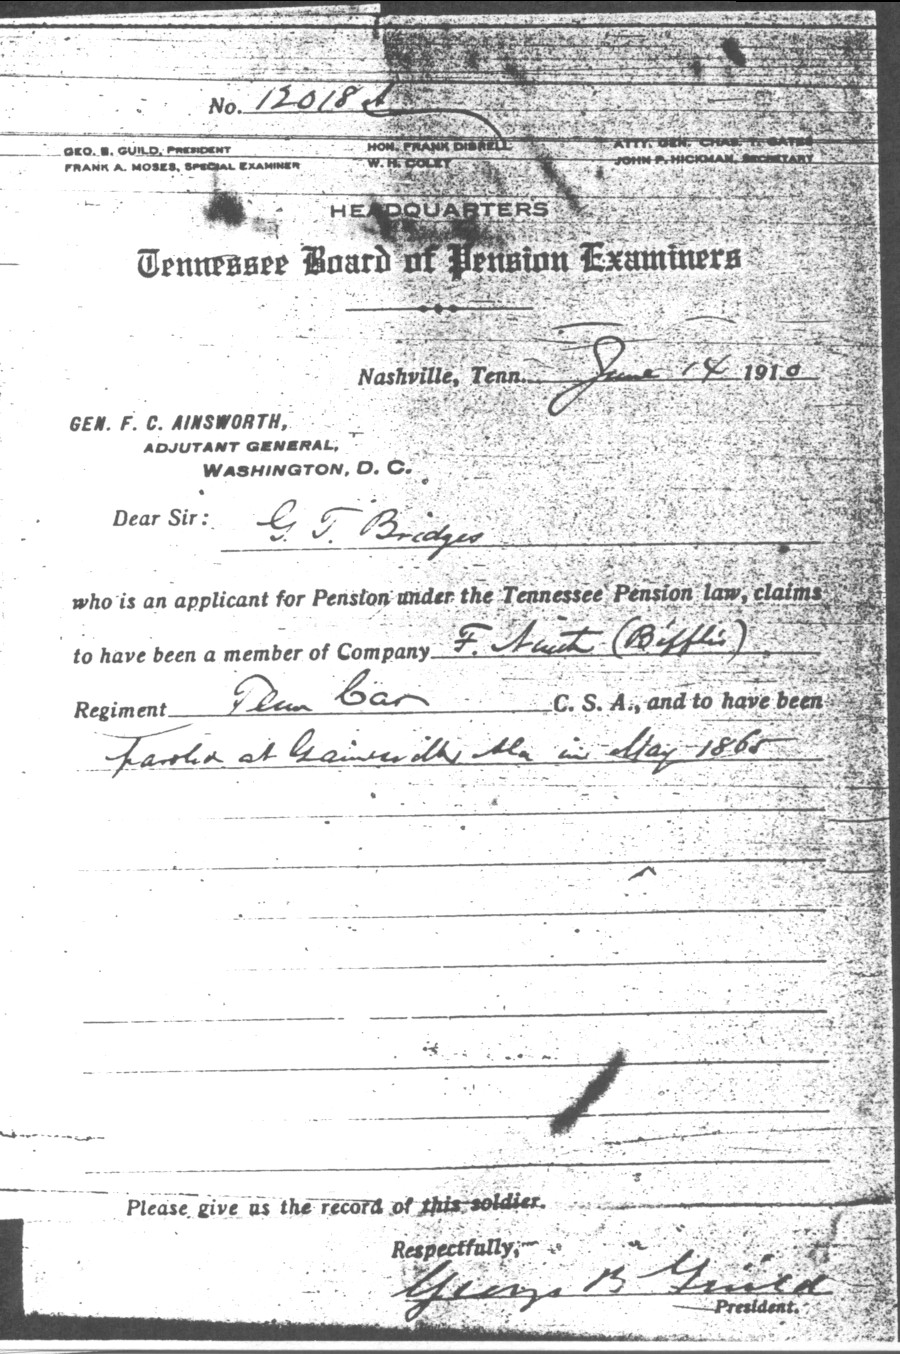 No. 12018
GEO. B. GUILD, PRESIDENT
FRANK A. MOSES, SPECIAL EXAMINER
HON. FRANK DIBRELL
W. H. COLEY
ATTY. GEN. CHAS. T. CATES
JOHN P. HICKMAN, SECRETARY
HEADQUARTERS
Tennessee Board of Pension Examiners
Nashville, Tenn. June 14 1910
GEN. F. C. AINSWORTH,
ADJUTANT GENERAL,
WASHINGTON, D. C.
Dear Sir: G. T. Bridges
who is an applicant for Pension under the Tennessee Pension law, claims
to have been a member of Company F. Ninth (Biffles)
Regiment Tenn Cav C. S. A., and to have been
paroled at Gainesville Ala in May 1865
Please give us the record of this soldier.
Respectfully,
George B Guild
President.